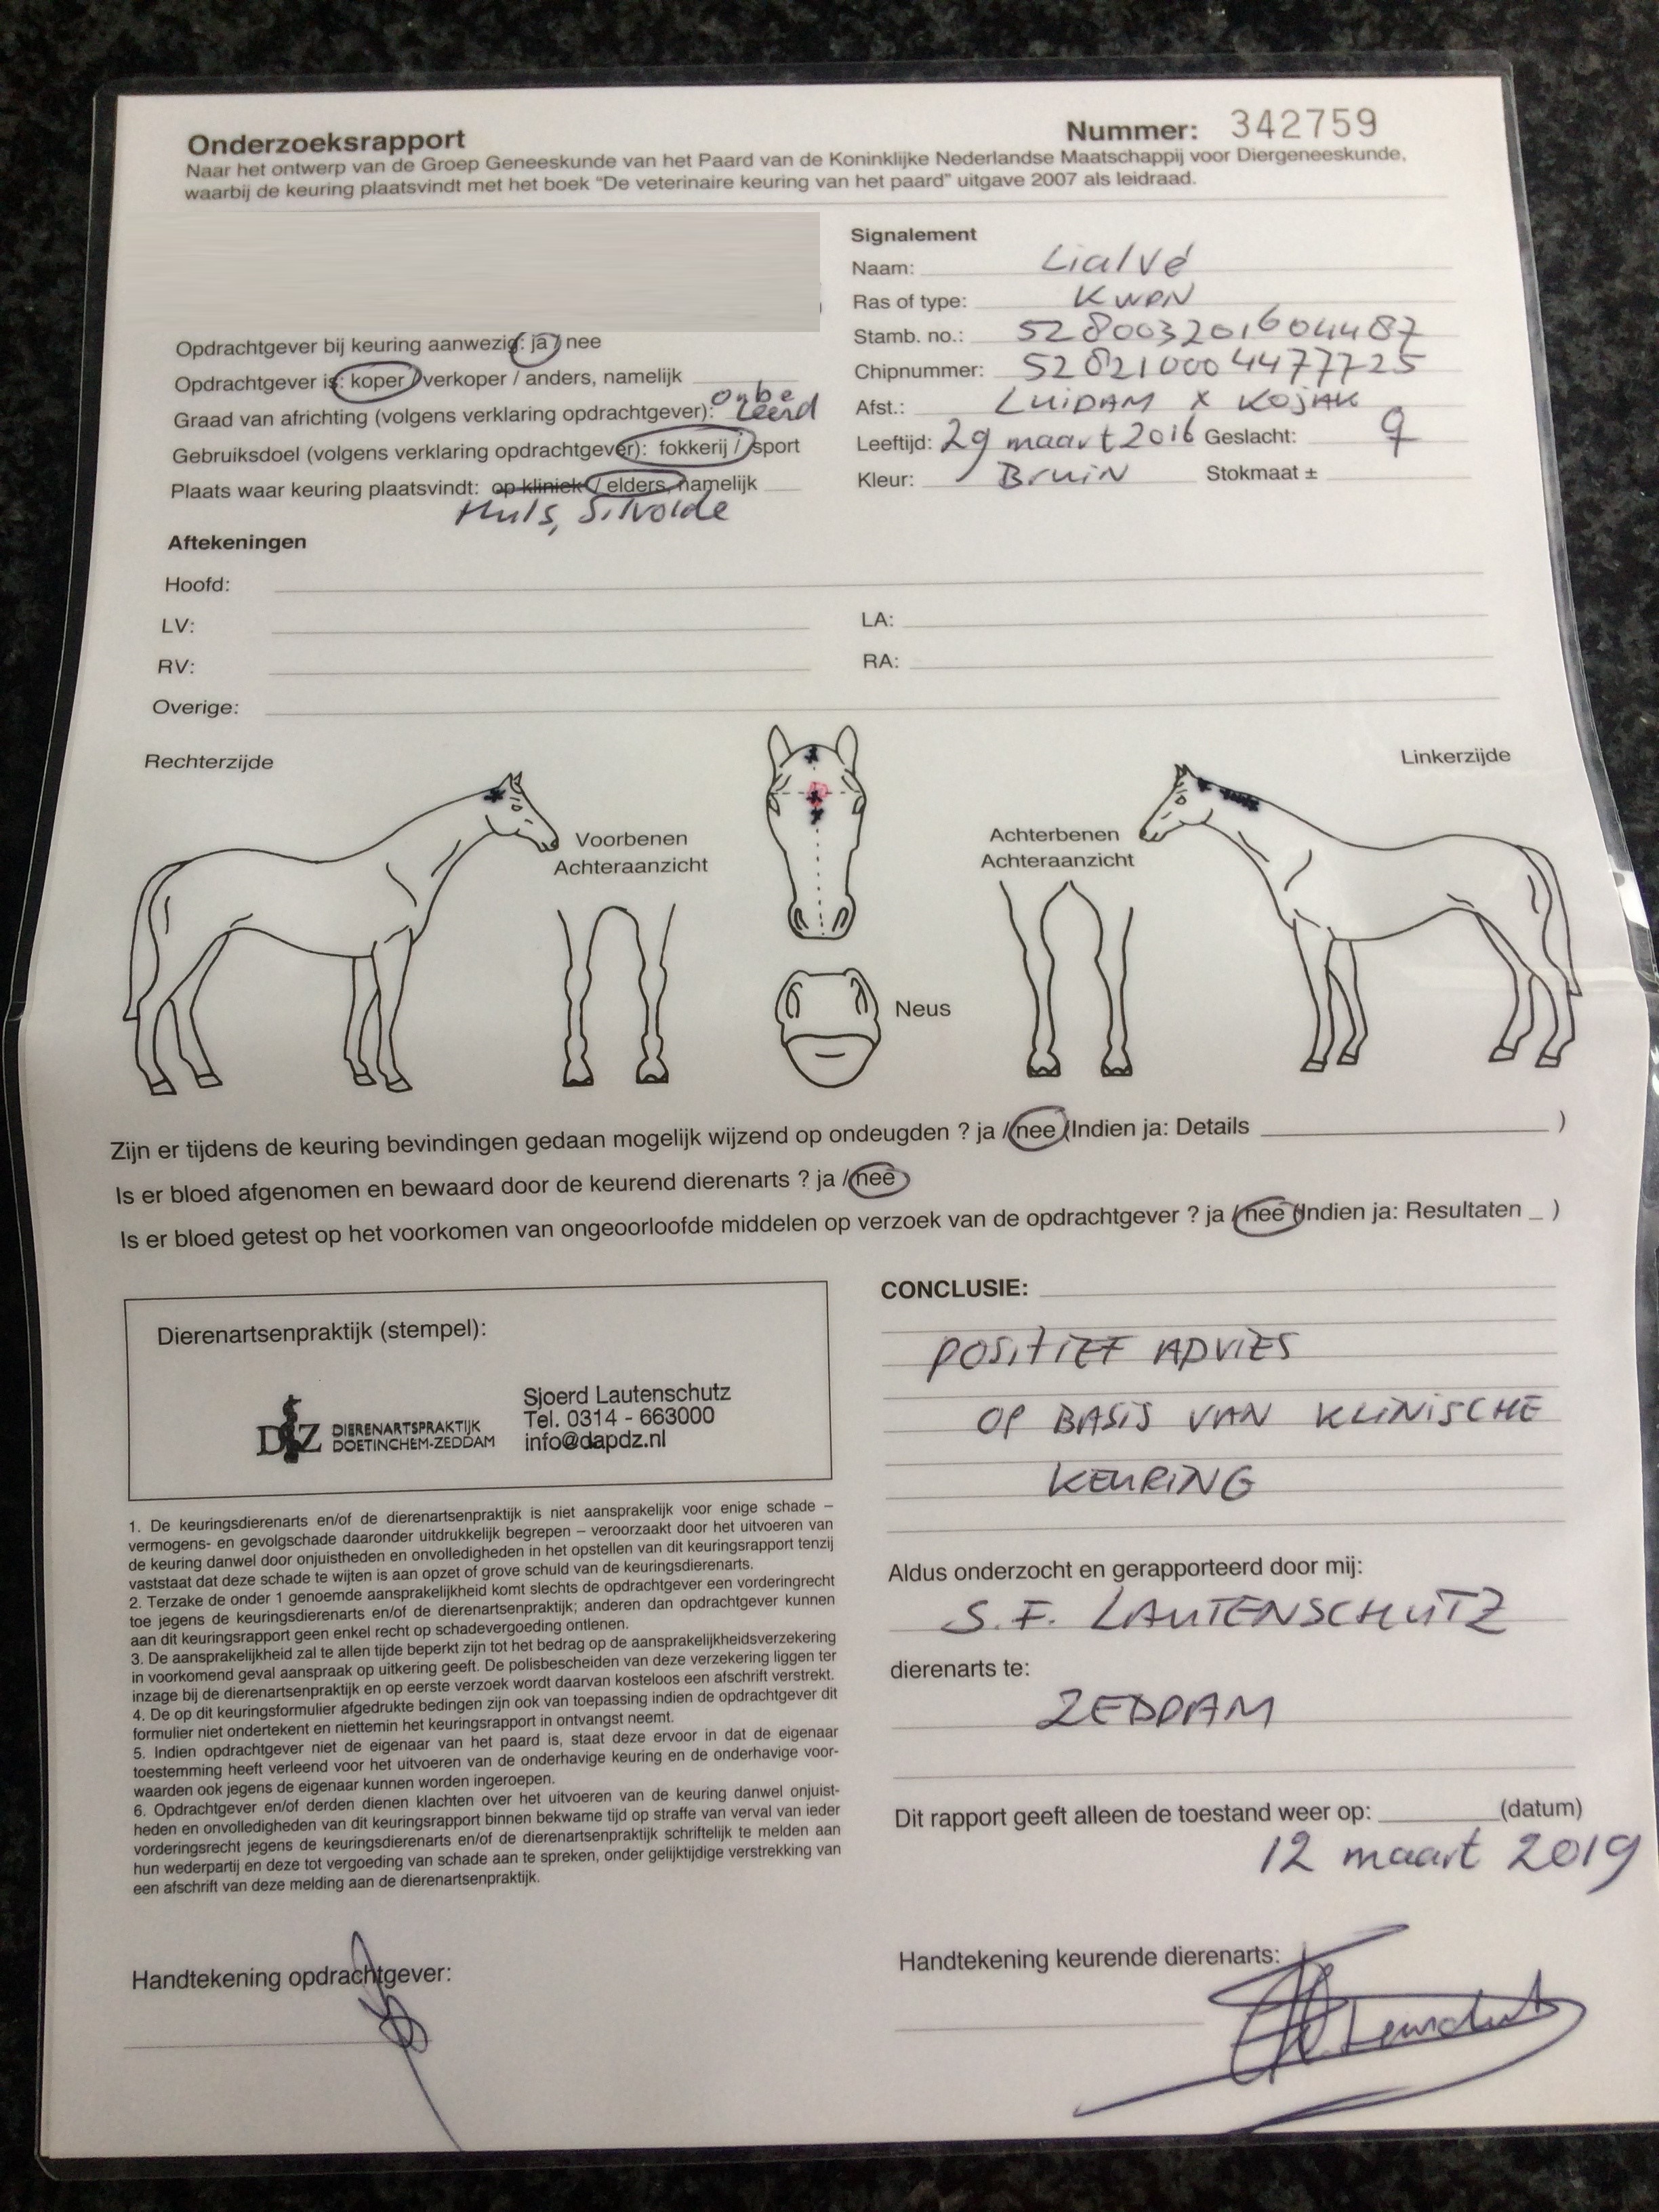 Onderzoeksrapport
Nummer: 342759
Naar het ontwerp van de Groep Geneeskunde van het Paard van de Koninklijke Nederlandse Maatschappij voor Diergeneeskunde,
waarbij de keuring plaatsvindt met het boek “De veterinaire keuring van het paard” uitgave 2007 als leidraad.
Opdrachtgever bij keuring aanwezig: ja / nee
Opdrachtgever is: koper / verkoper / anders, namelijk
Graad van africhting (volgens verklaring opdrachtgever): onbe
leerd
Gebruiksdoel (volgens verklaring opdrachtgever): fokkerij / sport
Plaats waar keuring plaatsvindt: op kliniek / elders, namelijk
Huls, Silvolde
Signalement
Naam: Lialvé
Ras of type: KWPN
Stamb. no.: 528003201604487
Chipnummer: 528210004477725
Afst.: LUIDAM x KOJAK
Leeftijd: 29 maart 2016 Geslacht: ♀
Kleur: Bruin Stokmaat ±
Aftekeningen
Hoofd:
LV: LA:
RV: RA:
Overige:
Rechterzijde
Linkerzijde
Voorbenen
Achteraanzicht
Achterbenen
Achteraanzicht
Neus
Zijn er tijdens de keuring bevindingen gedaan mogelijk wijzend op ondeugden ? ja / nee (Indien ja: Details )
Is er bloed afgenomen en bewaard door de keurend dierenarts ? ja / nee
Is er bloed getest op het voorkomen van ongeoorloofde middelen op verzoek van de opdrachtgever ? ja / nee (Indien ja: Resultaten _ )
Dierenartsenpraktijk (stempel):
DZ DIERENARTSPRAKTIJK
DOETINCHEM-ZEDDAM
Sjoerd Lautenschutz
Tel. 0314 - 663000
info@dapdz.nl
1. De keuringsdierenarts en/of de dierenartsenpraktijk is niet aansprakelijk voor enige schade –
vermogens- en gevolgschade daaronder uitdrukkelijk begrepen – veroorzaakt door het uitvoeren van
de keuring danwel door onjuistheden en onvolledigheden in het opstellen van dit keuringsrapport tenzij
vaststaat dat deze schade te wijten is aan opzet of grove schuld van de keuringsdierenarts.
2. Terzake de onder 1 genoemde aansprakelijkheid komt slechts de opdrachtgever een vorderingrecht
toe jegens de keuringsdierenarts en/of de dierenartsenpraktijk; anderen dan opdrachtgever kunnen
aan dit keuringsrapport geen enkel recht op schadevergoeding ontlenen.
3. De aansprakelijkheid zal te allen tijde beperkt zijn tot het bedrag op de aansprakelijkheidsverzekering
in voorkomend geval aanspraak op uitkering geeft. De polisbescheiden van deze verzekering liggen ter
inzage bij de dierenartsenpraktijk en op eerste verzoek wordt daarvan kosteloos een afschrift verstrekt.
4. De op dit keuringsformulier afgedrukte bedingen zijn ook van toepassing indien de opdrachtgever dit
formulier niet ondertekent en niettemin het keuringsrapport in ontvangst neemt.
5. Indien opdrachtgever niet de eigenaar van het paard is, staat deze ervoor in dat de eigenaar
toestemming heeft verleend voor het uitvoeren van de onderhavige keuring en de onderhavige voor-
waarden ook jegens de eigenaar kunnen worden ingeroepen.
6. Opdrachtgever en/of derden dienen klachten over het uitvoeren van de keuring danwel onjuist-
heden en onvolledigheden van dit keuringsrapport binnen bekwame tijd op straffe van verval van ieder
vorderingsrecht jegens de keuringsdierenarts en/of de dierenartsenpraktijk schriftelijk te melden aan
hun wederpartij en deze tot vergoeding van schade aan te spreken, onder gelijktijdige verstrekking van
een afschrift van deze melding aan de dierenartsenpraktijk.
Handtekening opdrachtgever:
CONCLUSIE:
POSITIEF ADVIES
OP BASIS VAN KLINISCHE
KEURING
Aldus onderzocht en gerapporteerd door mij:
S.F. LAUTENSCHUTZ
dierenarts te:
ZEDDAM
Dit rapport geeft alleen de toestand weer op: (datum)
12 maart 2019
Handtekening keurende dierenarts: